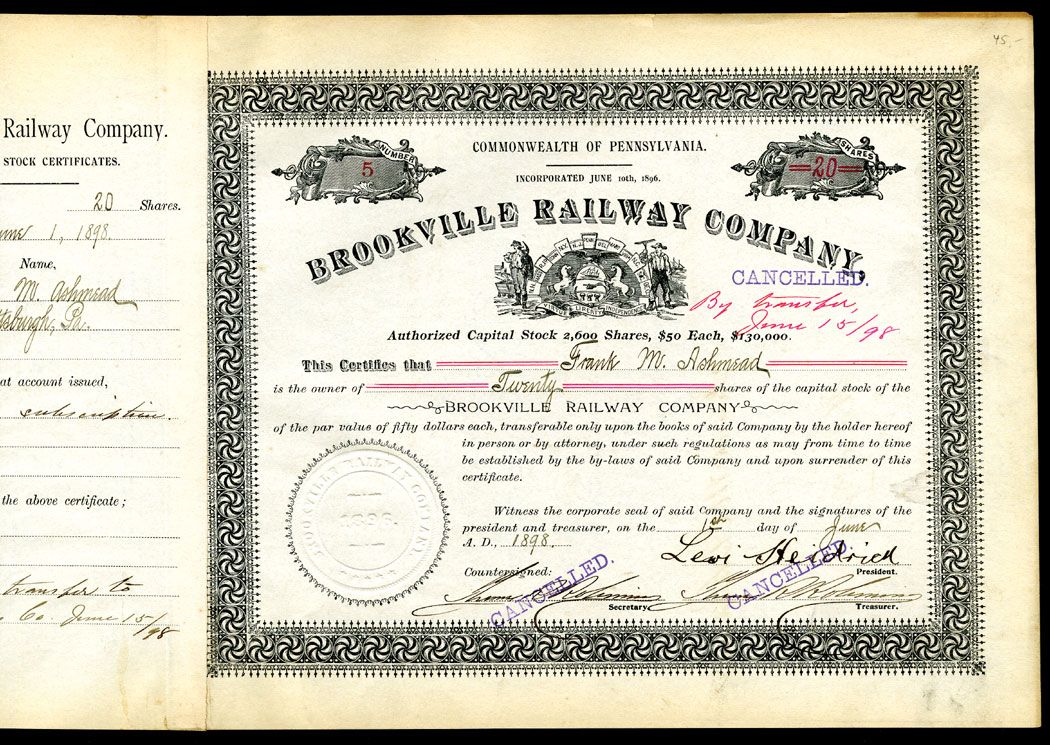 45,-
Railway Company.
STOCK CERTIFICATES.
20 Shares.
June 1, 1898.
Name,
M. Ashmead
ttsburgh, Pa.
at account issued,
subscription.
the above certificate;
transfer to
Co. June 15/98
NUMBER
5
SHARES
=20=
COMMONWEALTH OF PENNSYLVANIA.
INCORPORATED JUNE 10th, 1896.
BROOKVILLE RAILWAY COMPANY.
CANCELLED.
By transfer,
June 15/98
Authorized Capital Stock 2,600 Shares, $50 Each, $130,000.
This Certifies that Frank M. Ashmead
is the owner of Twenty shares of the capital stock of the
BROOKVILLE RAILWAY COMPANY
of the par value of fifty dollars each, transferable only upon the books of said Company by the holder hereof
in person or by attorney, under such regulations as may from time to time
be established by the by-laws of said Company and upon surrender of this
certificate.
BROOKVILLE RAILWAY COMPANY
1896.
Witness the corporate seal of said Company and the signatures of the
president and treasurer, on the 1st day of June
A. D., 1898.
Levi Heidrick
President.
Countersigned:
CANCELLED.
Secretary.
CANCELLED.
Treasurer.